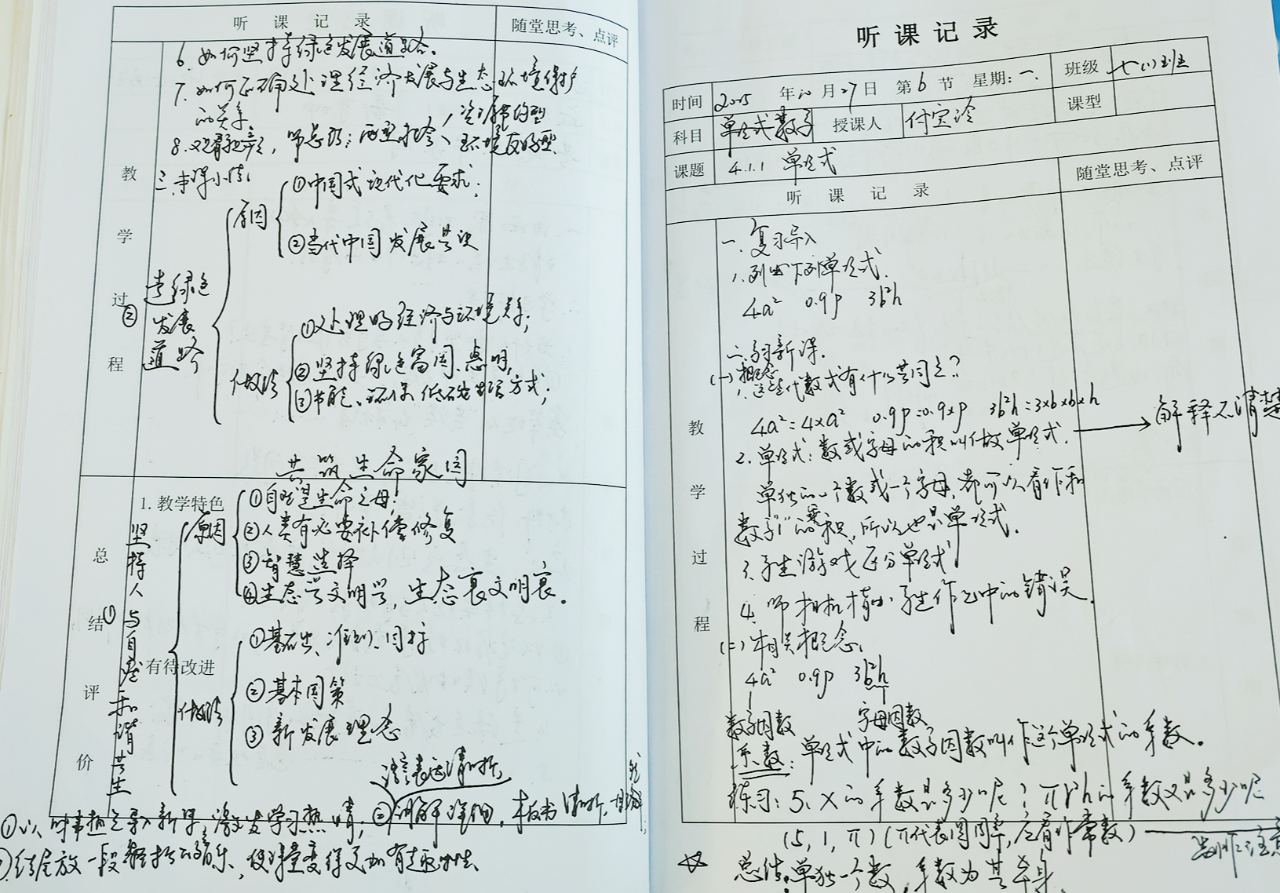 听 课 记 录
随堂思考、点评
教学过程
6. 如何坚持绿色发展道路。
7. 如何正确处理经济发展与生态环境保护
的关系
8. 师总结:
资源节约型
环境友好型
三、本课小结:
②走绿色发展道路
原因
①中国式现代化要求;
②当代中国发展共识
做法
①处理好经济与环境关系;
②坚持绿色富国、惠明,
③节能、环保、低碳生活方式;
共筑生命家园
总结评价
1. 教学特色
有待改进
①坚持人与自然和谐共生
原因
①自然是生命之母;
②人类有必要补偿修复
③智慧选择
④生态兴文明兴,生态衰文明衰。
做法
①基础、准则、目标
②基本国策
③新发展理念
语言表达清晰
①以时事热点导入新课,激发学习热情,
板书清晰,
听 课 记 录
时间 2025 年 10 月 27 日 第 6 节 星期: 一. 班级 七(1)班
科目 授课人 课型
课题 4.1.1 单项式
听 课 记 录
随堂思考、点评
教学过程
一. 复习导入
1. 列出下列单项式.
4a² 0.9p 3b²h
二. 新课.
(一)概念
1. 这些代数式有什么共同点?
4a²=4×a² 0.9p=0.9×p 3b²h=3×b×b×h
2. 单项式: 数或字母的积叫做单项式. → 解释不清楚
单独的一个数或一个字母,都可以看作和
数字"1"的乘积,所以也是单项式.
3. 学生游戏区分单项式
4. 师相机指出学生作业中的错误.
(二)相关概念.
4a² 0.9p 3b²h
数字因数 字母因数
系数: 单项式中的数字因数叫作这个单项式的系数。
练习: 5. x的系数是多少呢? πr²h的系数又是多少呢
(5, 1, π) (π代表圆周率, 应看作常数)
☆ 总结: 单独一个数, 系数为其本身